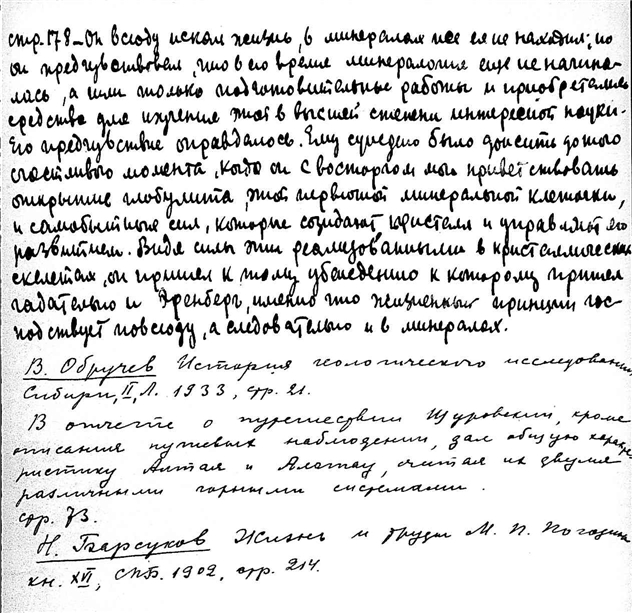 стр. 178 – Он всюду искал жизнь, в минералах ещё ея не находил; но
он предчувствовал, что в его время минералогия ещё не начина-
лась, а шли только подготовительные работы и приобретались
средства для изучения этой в высшей степени интересной науки.
Его предчувствие оправдалось. Ему суждено было дожить до того
счастливого момента, когда он с восторгом мог приветствовать
открытие глобулита, этой первичной минеральной клеточки,
и самобытные сил, которые созидают кристалл и управляют его
развитием. Видя силы эти реализованными в кристаллических
скелетах, он пришел к тому убеждению к которому пришел
гадательно и Эренберг, именно что жизненный принцип гос-
подствует повсюду, а следовательно и в минералах.
В. Обручев История геологического исследования
Сибири, II, Л. 1933, стр. 21.
В отчете о путешествии Щуровский, кроме
описания путевых наблюдений, дал общую характе-
ристику Алтая и Алатау, считая их двумя
различными горными системами.
стр. 73.
Н. Барсуков Жизнь и труды М. П. Погодина
кн. XVI, СПБ. 1902, стр. 214.